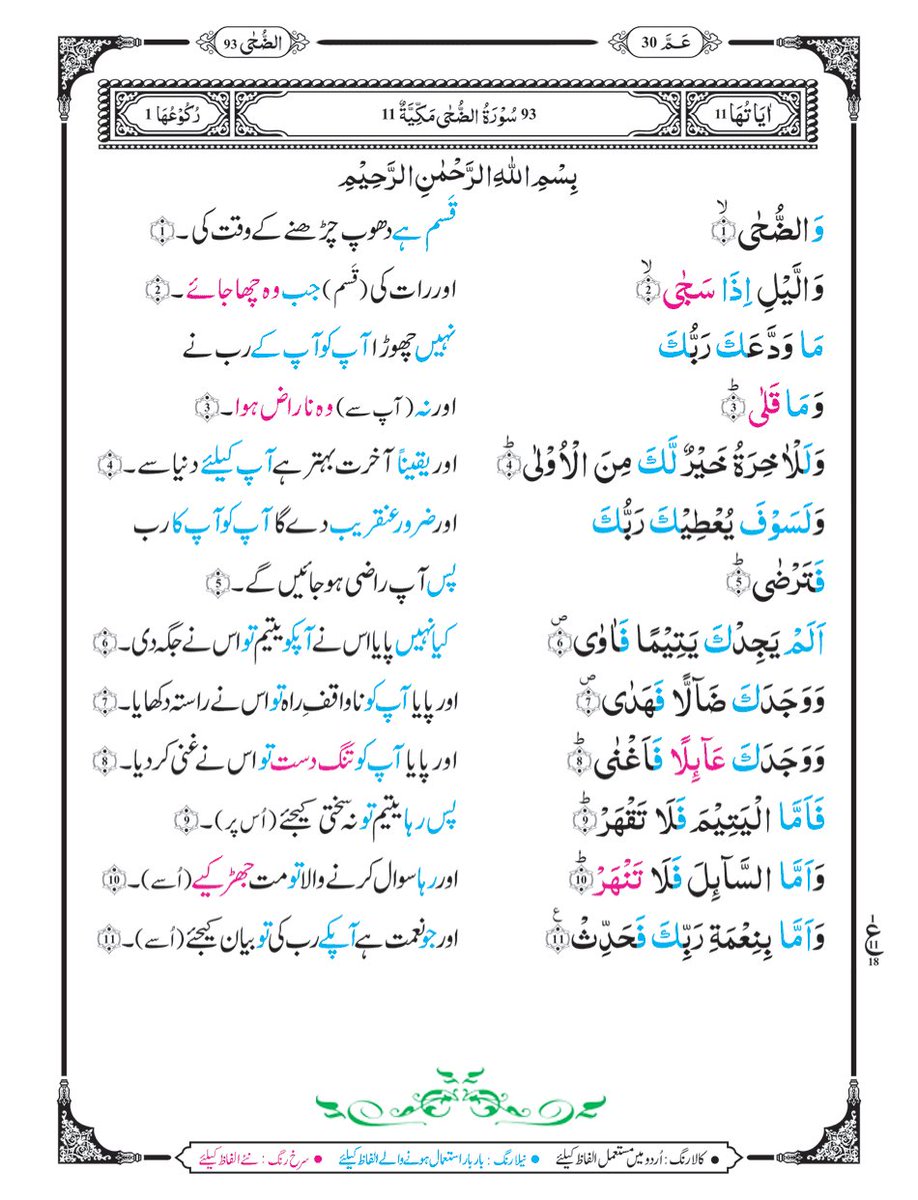 عَمَّ 30
الضُّحٰى 93
اٰيَاتُهَا 11
93 سُوْرَةُ الضُّحٰى مَكِّيَّةٌ 11
رُكُوْعُهَا 1
بِسْمِ اللهِ الرَّحْمٰنِ الرَّحِيْمِ
وَالضُّحٰى ۙ 1 قَسم ہے دھوپ چڑھنے کے وقت کی۔ 1
وَالَّيْلِ اِذَا سَجٰى ۙ 2 اور رات کی (قَسم) جب وہ چھا جائے۔ 2
مَا وَدَّعَكَ رَبُّكَ نہیں چھوڑا آپ کو آپ کے رب نے
وَمَا قَلٰى ؕ 3 اور نہ (آپ سے) وہ ناراض ہوا۔ 3
وَلَلْاٰخِرَةُ خَيْرٌ لَّكَ مِنَ الْاُوْلٰى ؕ 4 اور یقیناً آخرت بہتر ہے آپ کیلئے دنیا سے۔ 4
وَلَسَوْفَ يُعْطِيْكَ رَبُّكَ اور ضرور عنقریب دے گا آپ کو آپ کا رب
فَتَرْضٰى ؕ 5 پس آپ راضی ہو جائیں گے۔ 5
اَلَمْ يَجِدْكَ يَتِيْمًا فَاٰوٰى ۪ 6 کیا نہیں پایا اس نے آپکو یتیم تو اس نے جگہ دی۔ 6
وَوَجَدَكَ ضَآلًّا فَهَدٰى ۪ 7 اور پایا آپ کو ناواقفِ راہ تو اس نے راستہ دکھایا۔ 7
وَوَجَدَكَ عَآئِلًا فَاَغْنٰى ؕ 8 اور پایا آپ کو تنگ دست تو اس نے غنی کر دیا۔ 8
فَاَمَّا الْيَتِيْمَ فَلَا تَقْهَرْ ؕ 9 پس رہا یتیم تو نہ سختی کیجئے (اُس پر)۔ 9
وَاَمَّا السَّآئِلَ فَلَا تَنْهَرْ ؕ 10 اور رہا سوال کرنے والا تو مت جھڑکیے (اُسے)۔ 10
وَاَمَّا بِنِعْمَةِ رَبِّكَ فَحَدِّثْ ۧ 11 اور جو نعمت ہے آپکے رب کی تو بیان کیجئے (اُسے)۔ 11
ع 11 18
● کالا رنگ : اُردو میں مستعمل الفاظ کیلئے ● نیلا رنگ : بار بار استعمال ہونے والے الفاظ کیلئے ● سرخ رنگ : نئے الفاظ کیلئے